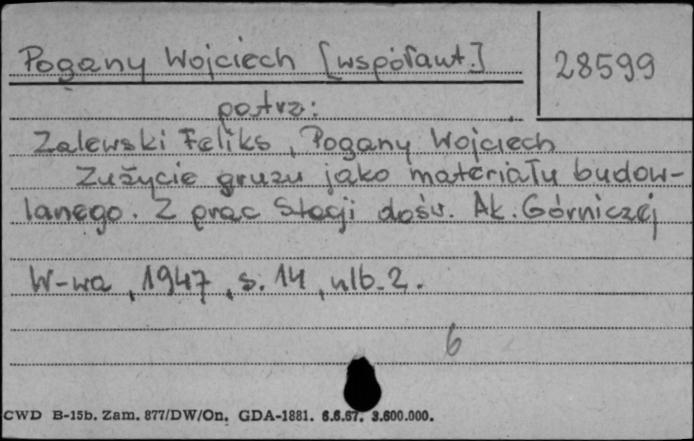 Pogany Wojciech [współaut.]
28599
patrz:
Zalewski Feliks, Pogany Wojciech
Zużycie gruzu jako materiału budow-
lanego. Z prac Stacji dośw. Ak. Górniczej
W-wa, 1947, s. 14, nlb. 2.
6
CWD B-15b. Zam. 877/DW/On. GDA-1881. 6.6.67. 3.600.000.